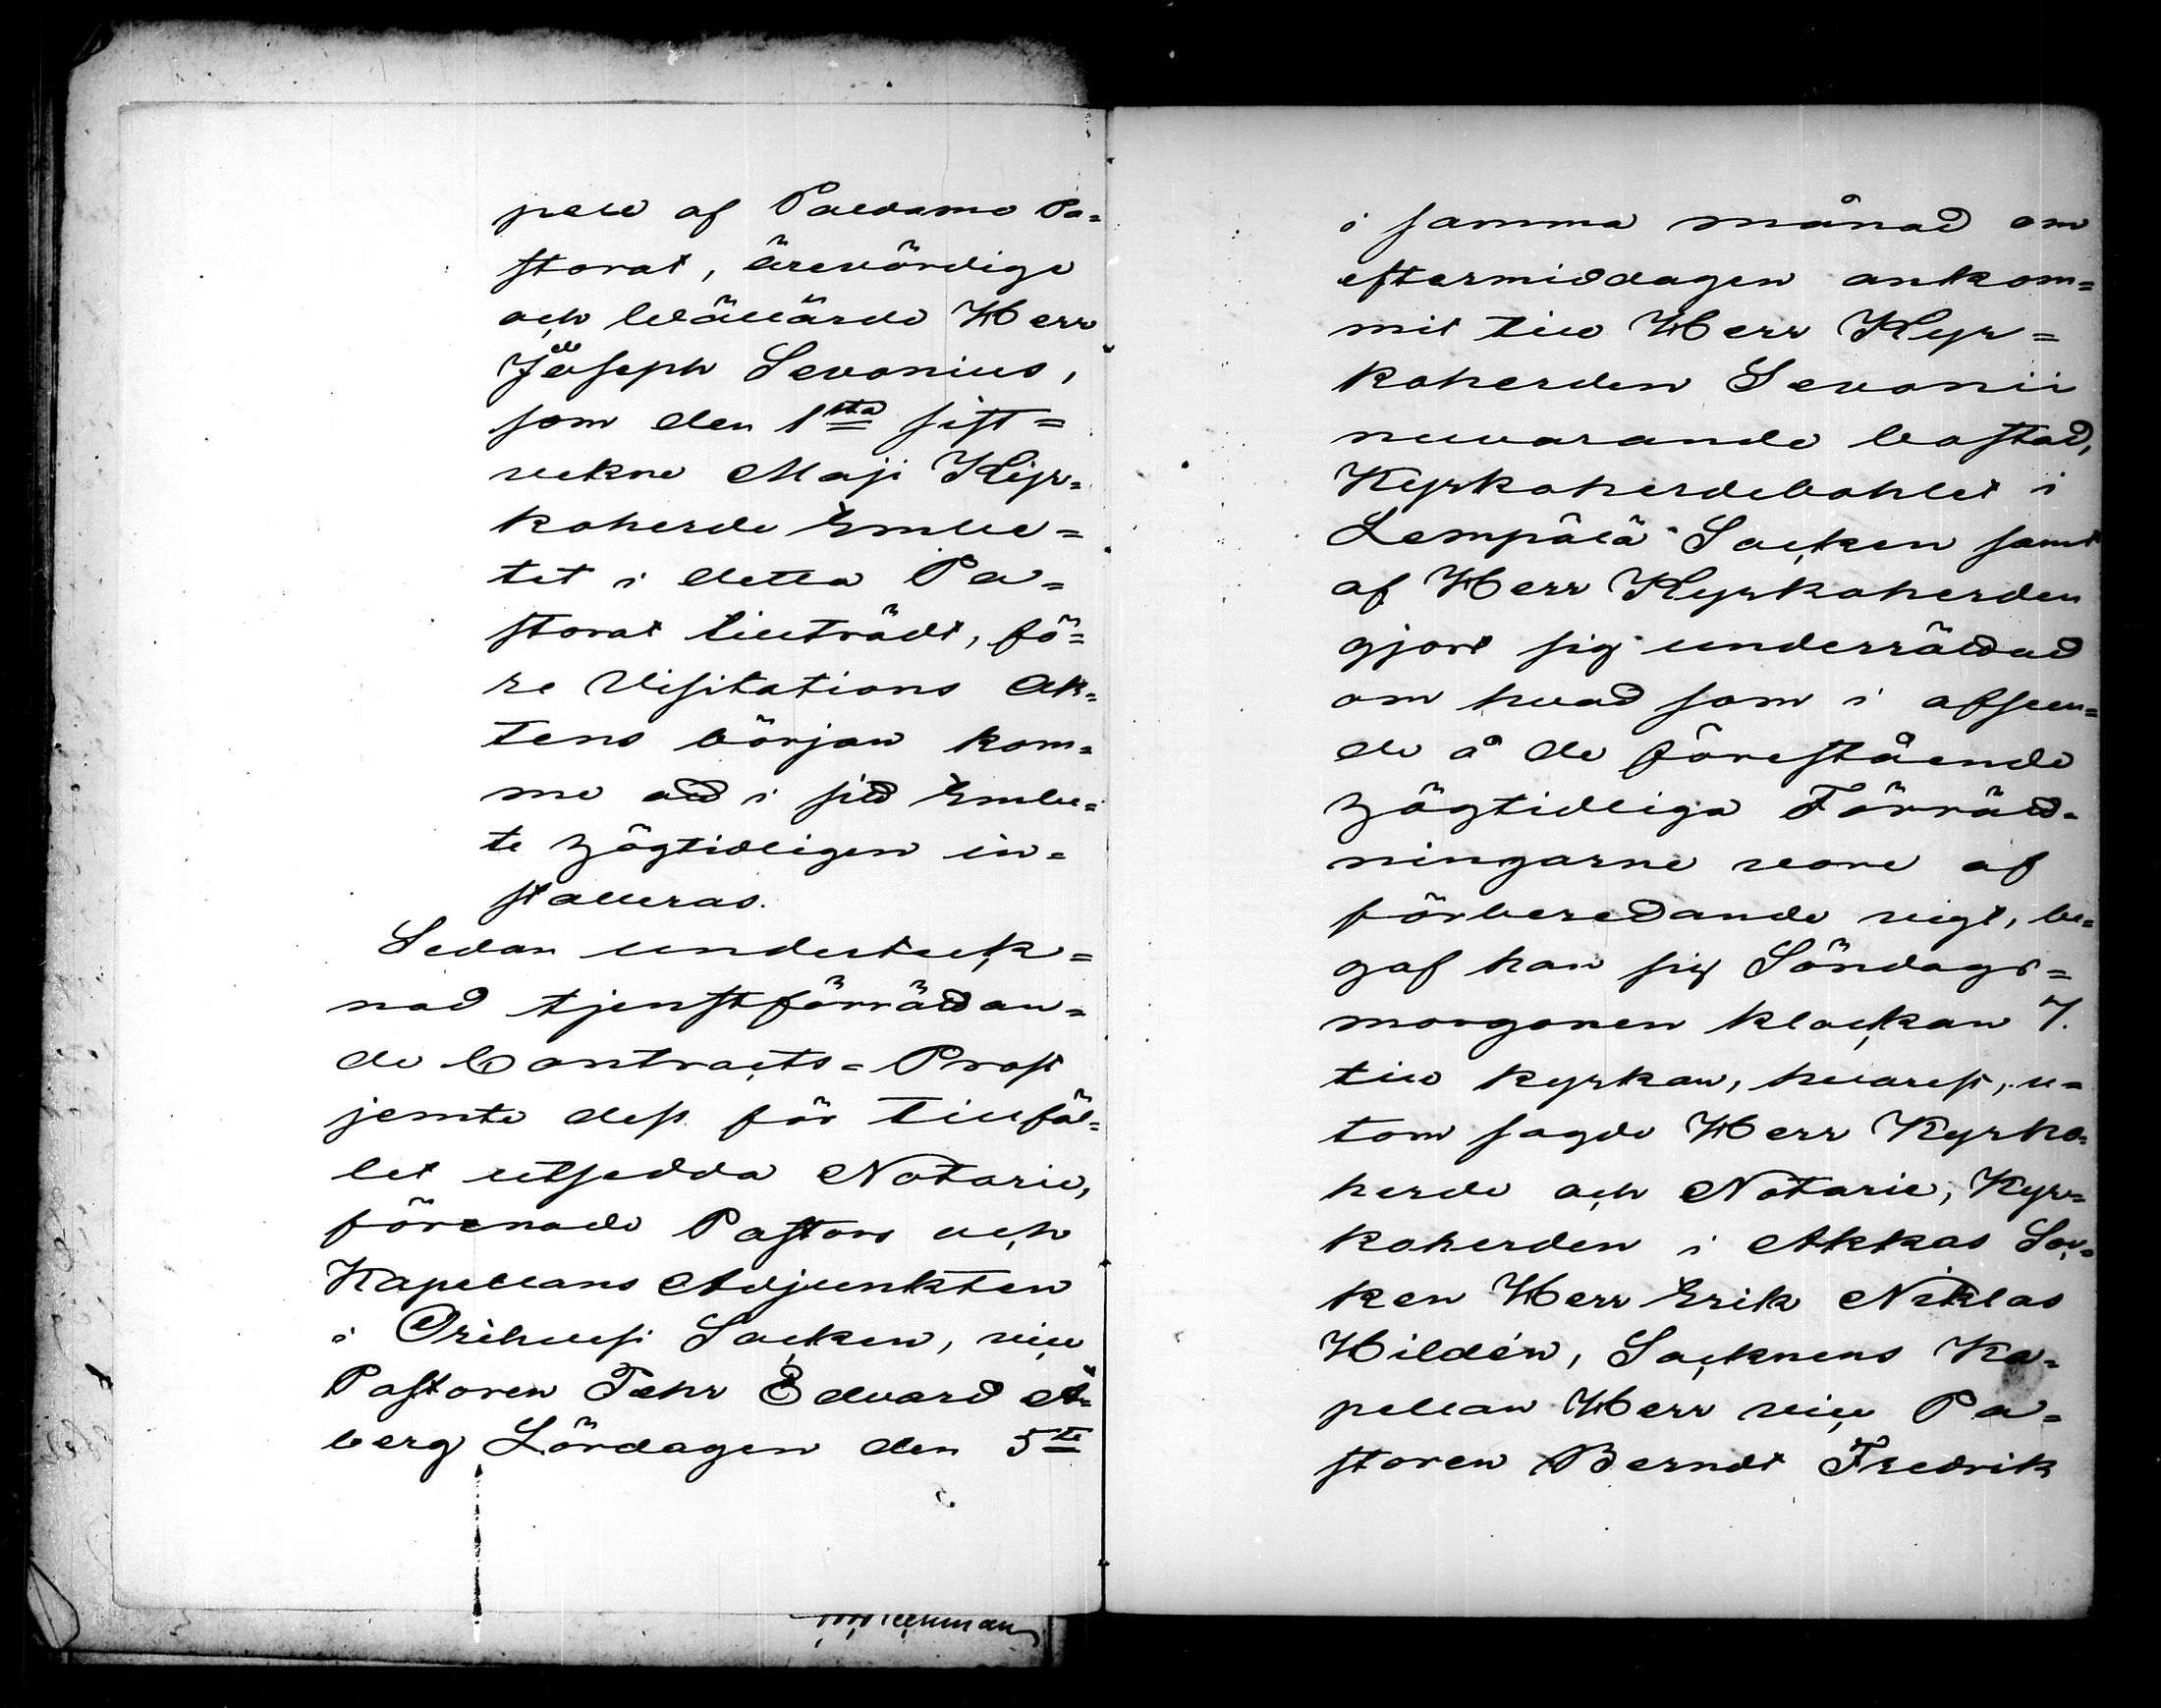 pell af Paldamo Pa=
storat, ärevördige
och Wällärde Herr
Joseph Sevonius,
som den 1sta sist=
vekne Maji Kyr=
koherde Embe=
tet i detta Pa=
storat tillträdt, fö=
re Visitations Ak=
tens början kom=
me att i sitt Embe=
te högtidligen in=
stalleras.
Sedan underteck=
nad tjenstförrättan=
de Contracts=Prost
jemte dess för tillfäl=
let utsedda Notarie,
förenade Pastors och
Kapellans Adjunkten
i Orihvesi Socken, vice
Pastoren Fehr Edvard Å=
berg Lördagen den 5te
i samma månad om
eftermiddagen ankom=
mit till Herr Kyr=
koherden Sevonii
nuvarande bostad,
Kyrkoherdebohlet i
Lempälä Socken samt
af Herr Kyrkoherden
gjort sig underrättad
om hvad som i afseen=
de å de förestående
högtidliga Förrätt=
ningarne vore af
förberedande vigt, be=
gaf han sig Söndags=
morgonen klockan 7.
till kyrkan, hvarest, u=
tom sagde Herr Kyrko=
herde och Notarie, Kyr=
koherden i Akkas Soc=
ken Herr Erik Niklas
Hildén, Socknens Ka=
pellan Herr vice Pa=
storen Berndt Fredrik